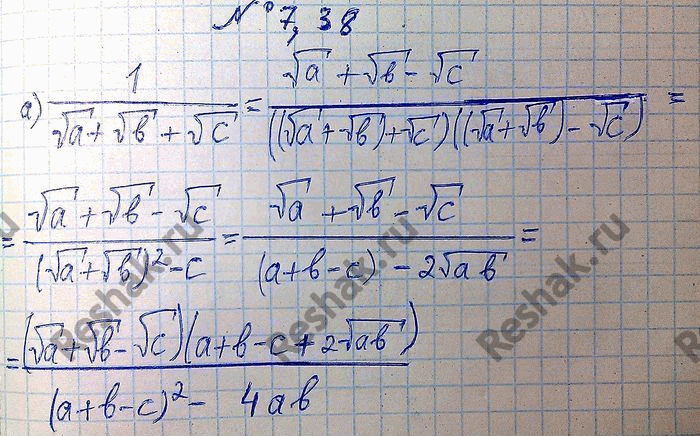 № 7,38
а) 1/(√a + √b + √c) = (√a + √b - √c)/(((√a + √b) + √c)((√a + √b) - √c)) =
= (√a + √b - √c)/((√a + √b)² - c) = (√a + √b - √c)/((a+b-c) - 2√ab) =
= (√a + √b - √c)(a+b-c + 2√ab)/((a+b-c)² - 4ab)
Reshak.ru
Reshak.ru
Reshak.ru